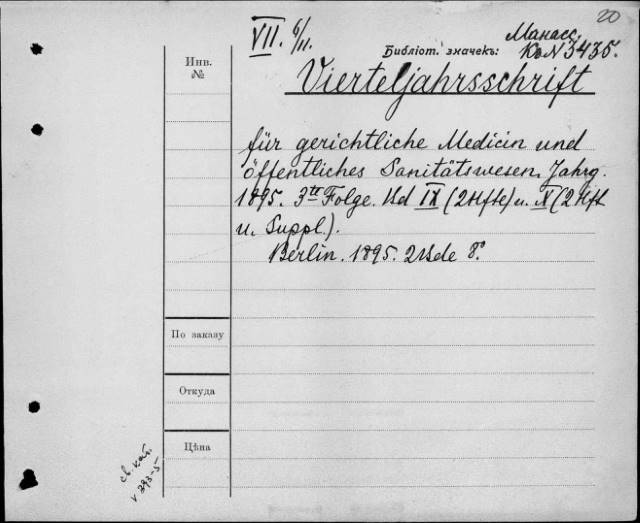 20
VII. 6/11.
Манасс.
Библіот. значекъ: Ко N 3435.
Инв.
№
Vierteljahrsschrift
für gerichtliche Medicin und
öffentliches Sanitätswesen. Jahrg.
1895. 3te Folge. Bd IX (2 Hfte) u. X (2 Hft
u. Suppl.).
Berlin. 1895. 2 Bde 8°.
По заказу
Откуда
Цѣна
св. кат.
v 393-5